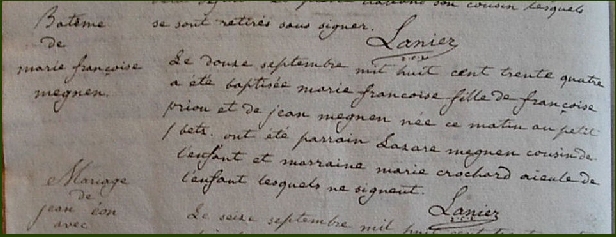 son cousin lesquels
se sont retirés sans signer.
Laniez
Batême
de
marie françoise
megnen.
Le douze septembre mil huit cent trente quatre
a été baptisée marie francoise fille de françoise
priou et de jean megnen née ce matin au petit
betz. ont été parrain Lazare megnen cousin de
l'enfant et marraine marie crochard aieule de
l'enfant lesquels ne signent.
Laniez
Mariage
de
jean éon
avec
Le seize septembre mil huit cent trente